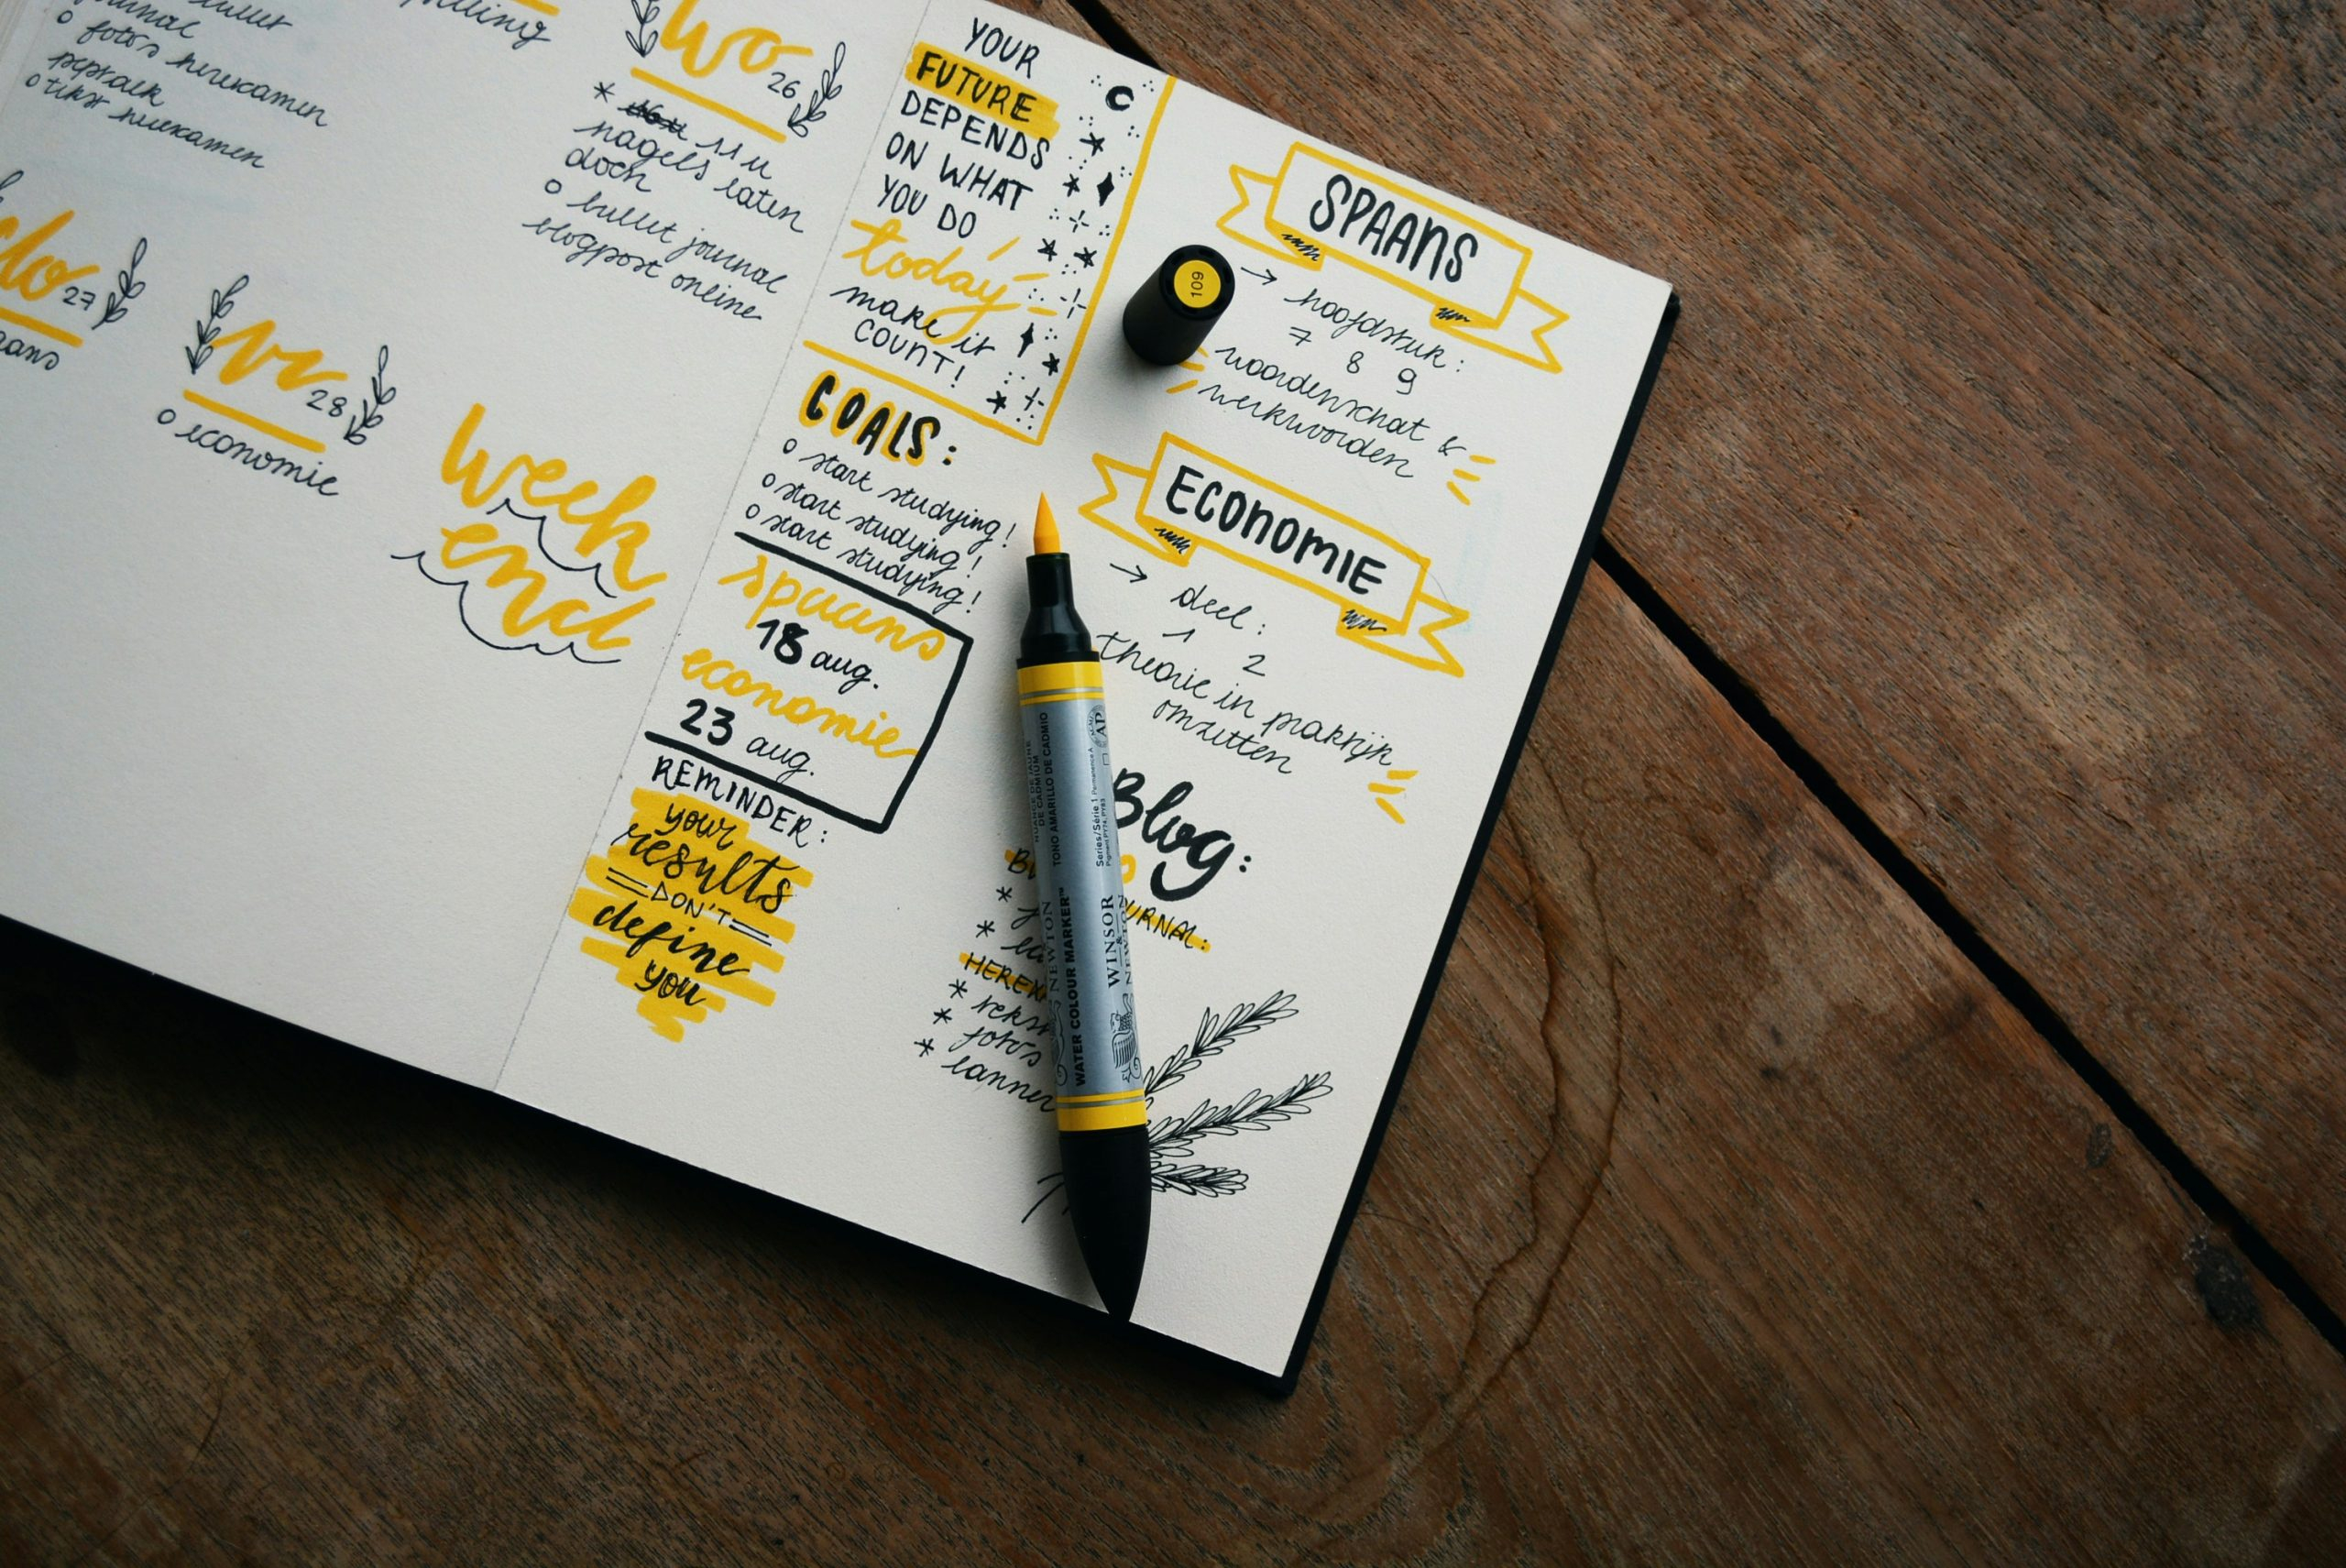 journal
o foto's herexamen
peptalk
o tekst herexamen
do 27
vr 28
o economie
wo 26
* 11 u
nagels laten
doen
o bullet journal
blogpost online
week
end
YOUR
FUTURE
DEPENDS
ON WHAT
YOU DO
today
make it
COUNT!
GOALS:
o start studying!
o start studying!
o start studying!
spaans
18 aug.
economie
23 aug.
REMINDER:
your
results
DON'T
define
you
SPAANS
→ hoofdstuk:
7 8 9
woordenschat &
werkwoorden
ECONOMIE
→ deel:
1 2
theorie in praktijk
omzetten
Blog:
URNAL:
*
*
HEREX
* tekst
* foto's
*
109
NUANCE DE JAUNE
DE CADMIUM
TONO AMARILLO DE CADMIO
Series/Série 1 Permanence A
AP
NEWTON
WATER COLOUR MARKER™
WINSOR
&
NEWTON